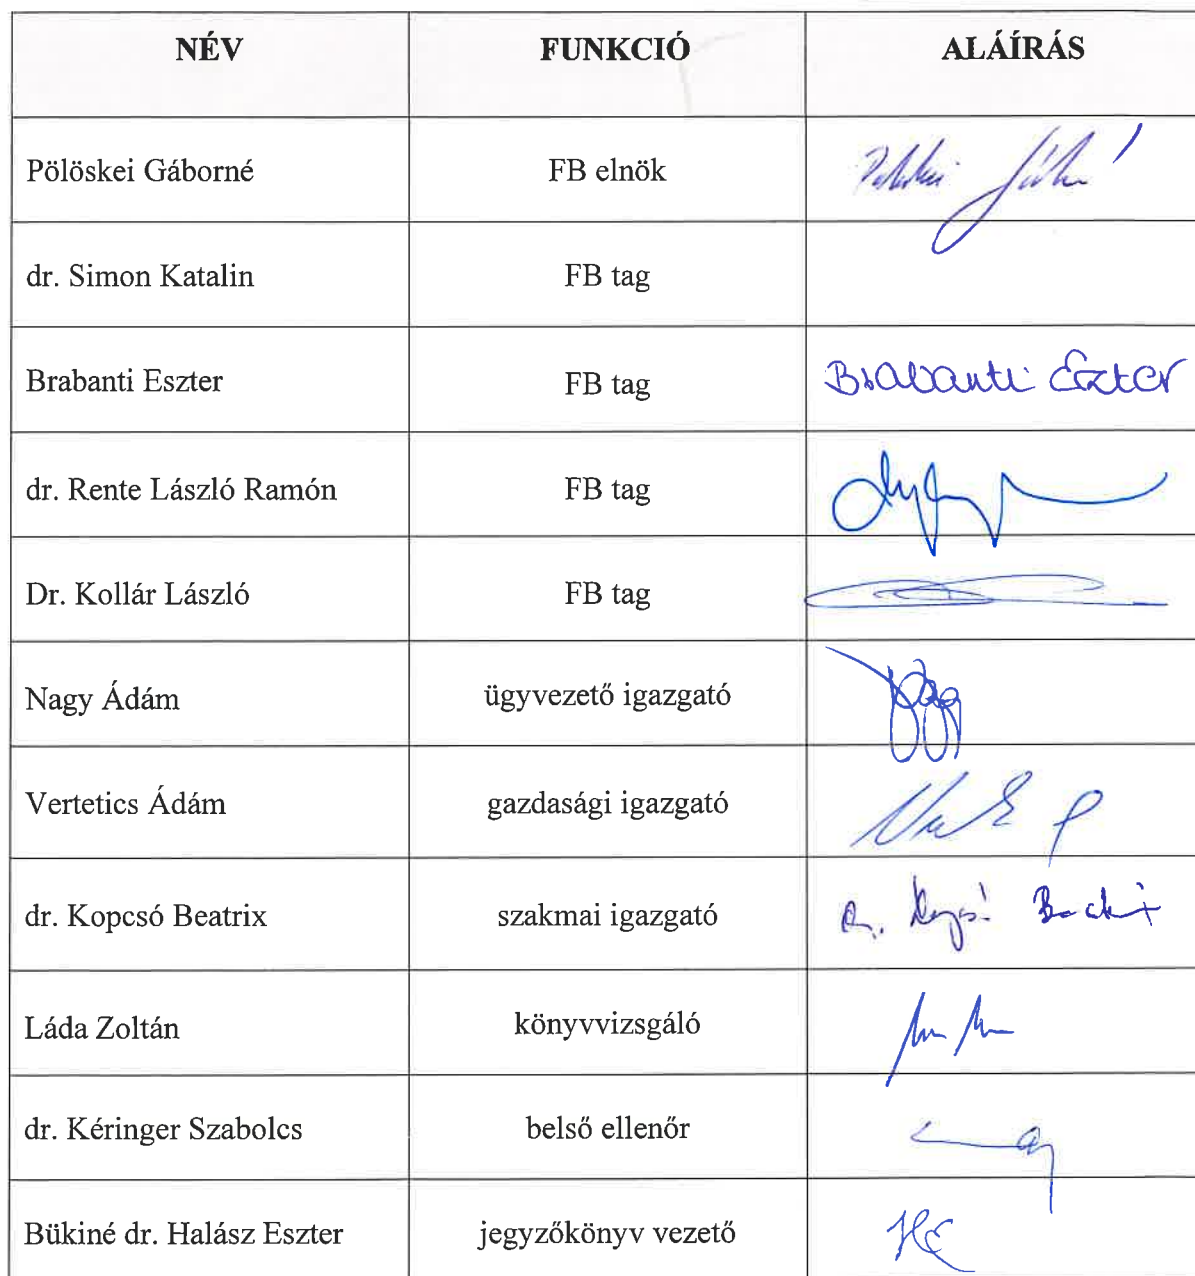 NÉV FUNKCIÓ ALÁÍRÁS
Pölöskei Gáborné FB elnök
dr. Simon Katalin FB tag
Brabanti Eszter FB tag Brabanti Eszter
dr. Rente László Ramón FB tag
Dr. Kollár László FB tag
Nagy Ádám ügyvezető igazgató
Vertetics Ádám gazdasági igazgató
dr. Kopcsó Beatrix szakmai igazgató
Láda Zoltán könyvvizsgáló
dr. Kéringer Szabolcs belső ellenőr
Bükiné dr. Halász Eszter jegyzőkönyv vezető HE